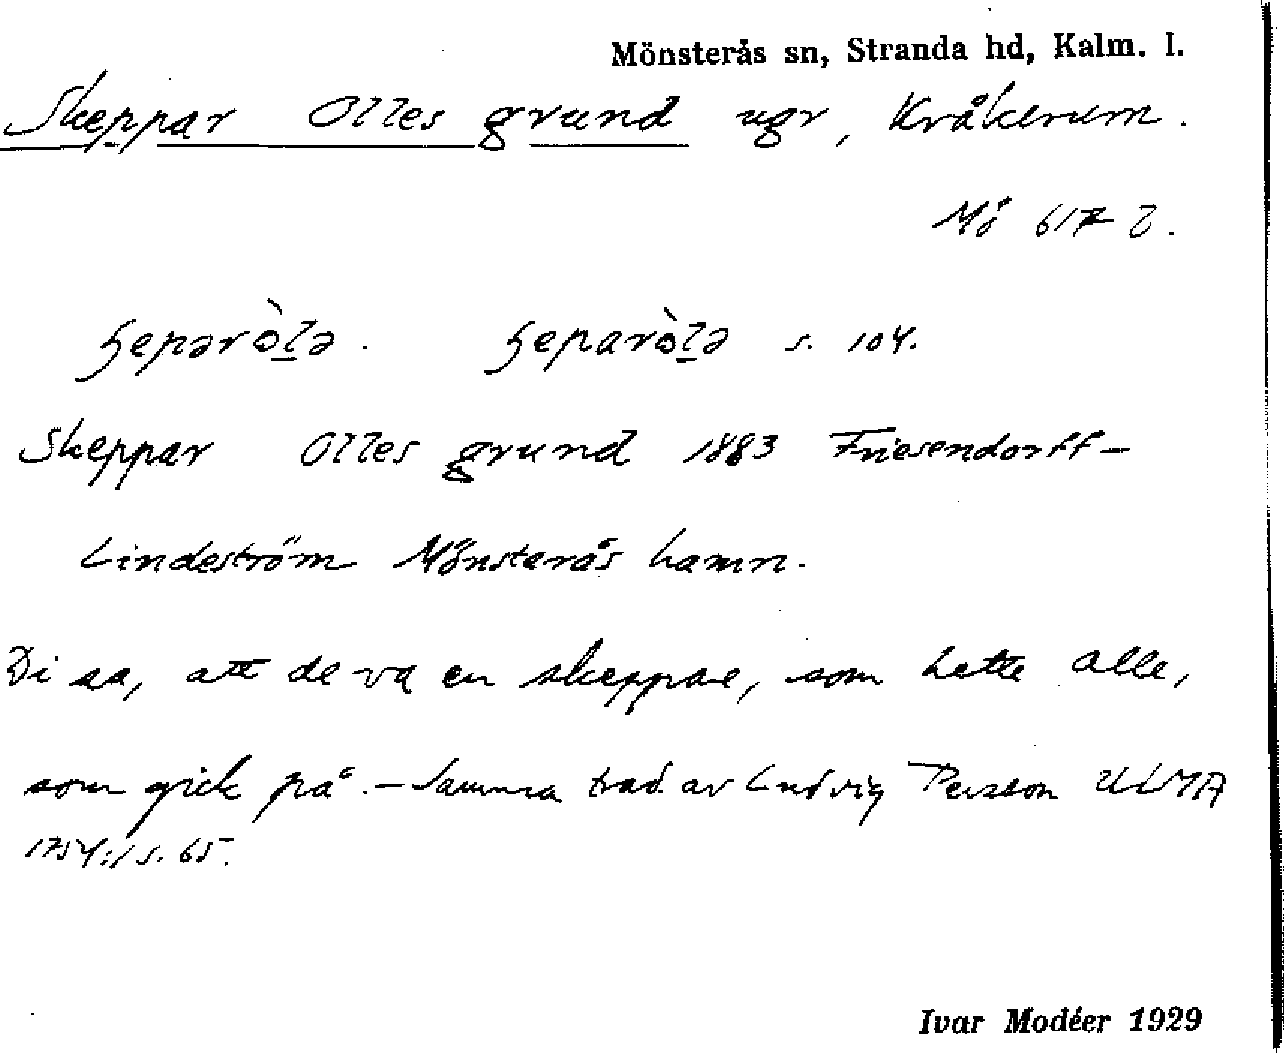 Mönsterås sn, Stranda hd, Kalm. l.
Skeppar Olles grund ugr, Kråkerum.
Mö 617
s. 104.
Skeppar Olles grund 1883 Friesendorff-
Lindeström Mönsterås hamn.
Di sa, att de va en skeppare, som hette Olle,
som gick på. – Samma trad. av Ludvig Persson ULMA
1754:1 s. 65.
Ivar Modéer 1929